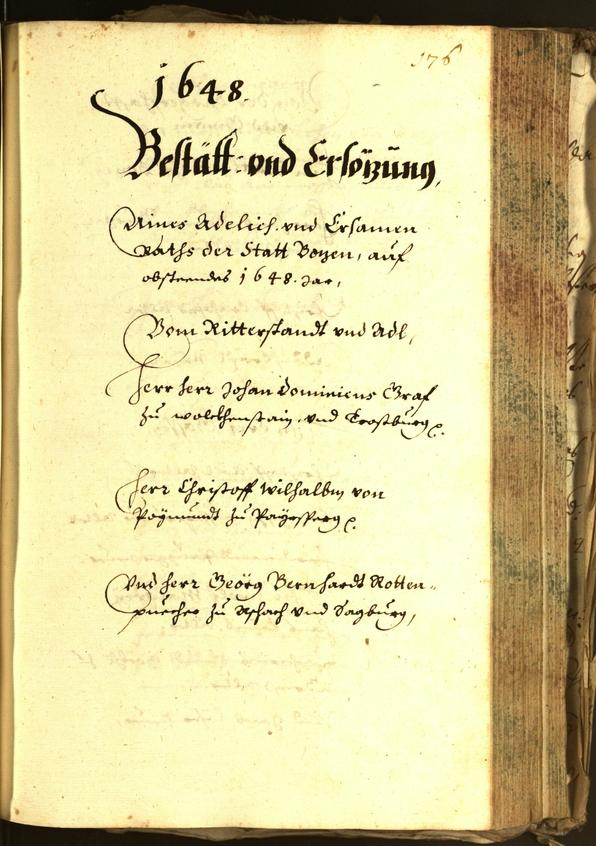 176
1648.
Bestätt: vnd Ersözung,
Aines Adelich. vnd Ersamen
Raths der Statt Bozen, auf
obsteendes 1648. Jar,
Vom Ritterstandt vnd Adl,
Herr Herr Johan Dominicus Graf
zu Wolckhenstain, vnd Trostburg
Herr Christoff Wilhalbm von
Paÿmundt zu Paÿrsperg
Vnd Herr Geörg Bernhardt Rotten-
puecher zu Aschach vnd Sagburg,